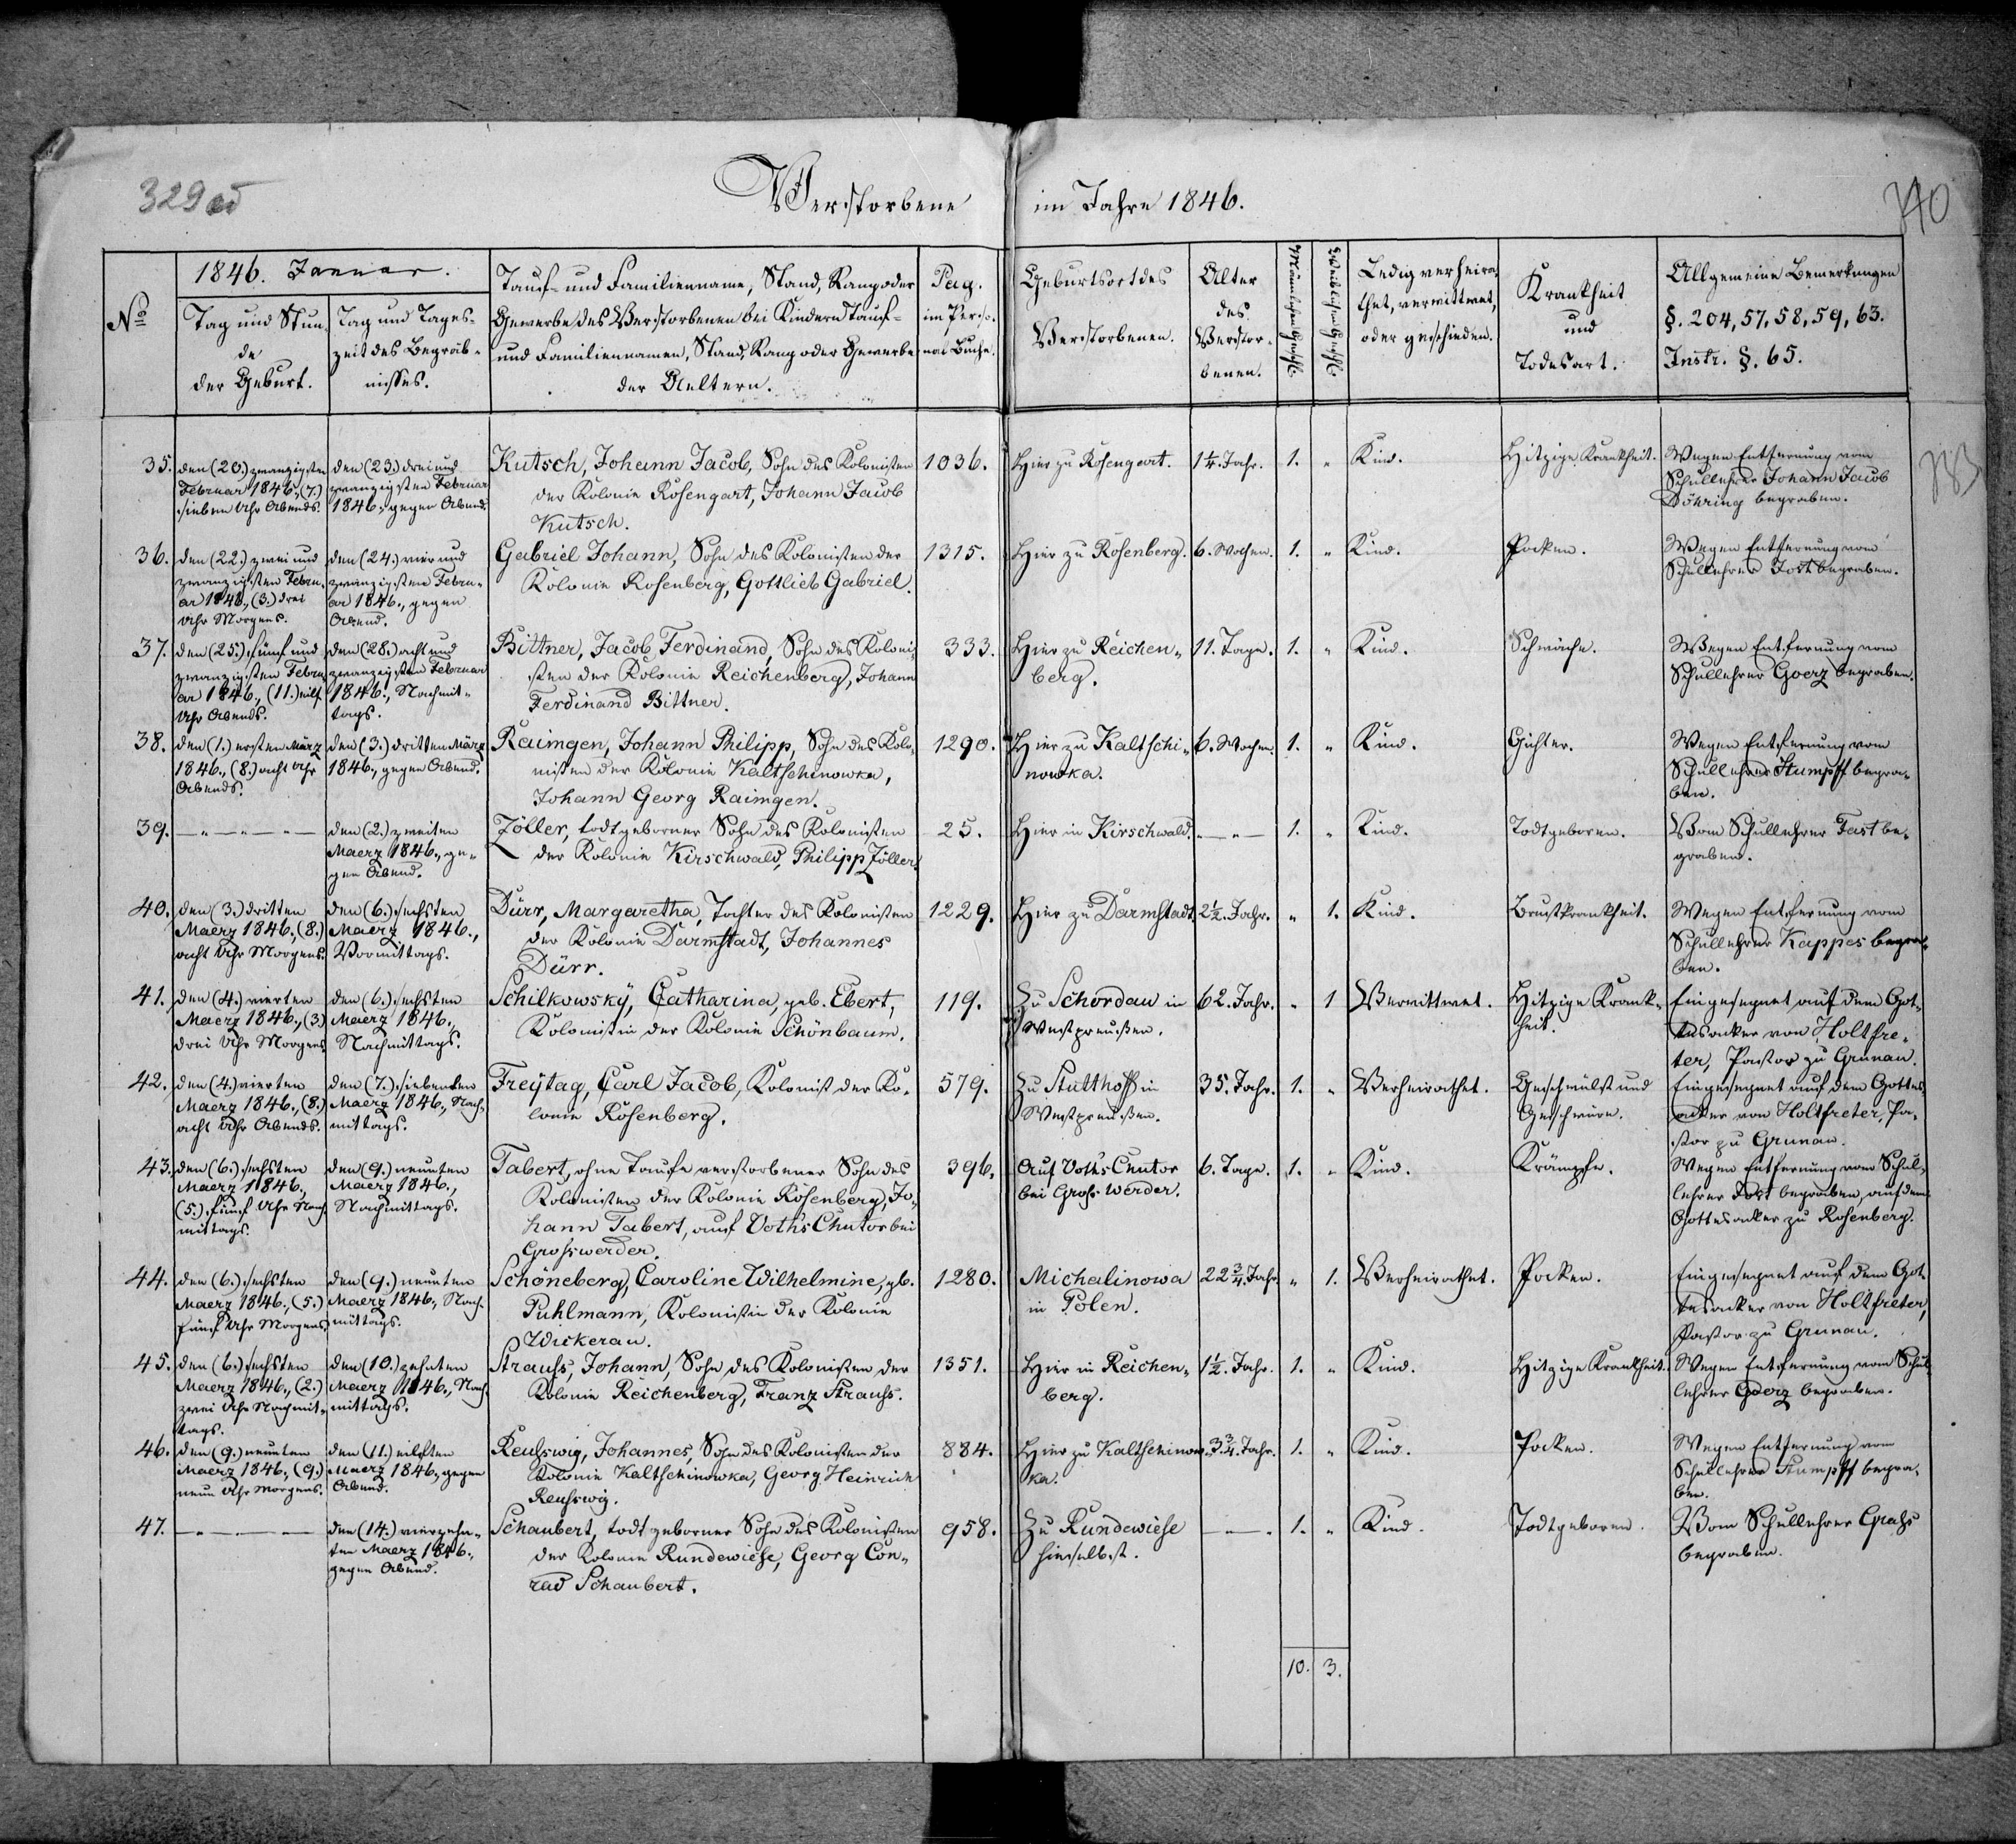 329 об
340
383
Verstorbene im Jahre 1846.
No
1846. Januar.
Tag und Stun-
de
der Geburt.
Tag und Tages-
zeit des Begräb-
nisses.
Tauf- und Familienname, Stand, Rang oder
Gewerbe des Verstorbenen bei Kindern Tauf-
und Familiennamen, Stand, Rang oder Gewerbe
der Aeltern.
Pag.
im Perso-
nal Buche.
Geburtsort des
Verstorbenen.
Alter
des
Verstor-
benen.
Männlichen Geschl.
Weiblichen Geschl.
Ledig verheira-
thet, verwittwet,
oder geschieden.
Krankheit
und
Todesart.
Allgemeine Bemerkungen
§. 204, 57, 58, 59, 63.
Instr. §. 65.
35.
den (20.) zwanzigsten
Februar 1846., (7.)
sieben Uhr Abends.
den (23.) drei und
zwanzigsten Februar
1846., gegen Abend.
Kutsch, Johann Jacob, Sohn des Kolonisten
der Kolonie Rosengart, Johann Jacob
Kutsch.
1036.
Hier zu Rosengart.
1¼. Jahr.
1.
"
Kind.
Hitzige Krankheit.
Wegen Entfernung vom
Schullehrer Johann Jacob
Döhring begraben.
36.
den (22.) zwei und
zwanzigsten Febru-
ar 1846., (3.) drei
Uhr Morgens.
den (24.) vier und
zwanzigsten Febru-
ar 1846., gegen
Abend.
Gabriel Johann, Sohn des Kolonisten der
Kolonie Rosenberg, Gottlieb Gabriel.
1315.
Hier zu Rosenberg.
6. Wochen.
1.
"
Kind.
Pocken.
Wegen Entfernung vom
Schullehrer Jost begraben.
37.
den (25.) fünf und
zwanzigsten Febru-
ar 1846., (11.) eilf
Uhr Abends.
den (28.) acht und
zwanzigsten Februar
1846., Nachmit-
tags.
Bittner, Jacob Ferdinand, Sohn des Koloni-
sten der Kolonie Reichenberg, Johann
Ferdinand Bittner.
333.
Hier zu Reichen-
berg.
11. Tage.
1.
"
Kind.
Schwäche.
Wegen Entfernung vom
Schullehrer Goerz begraben.
38.
den (1.) ersten März
1846., (8.) acht Uhr
Abends.
den (3.) dritten März
1846., gegen Abend.
Raimgen, Johann Philipp, Sohn des Kolo-
nisten der Kolonie Kaltschinowka,
Johann Georg Raimgen.
1290.
Hier zu Kaltschi-
nowka.
6. Wochen.
1.
"
Kind.
Gichter.
Wegen Entfernung vom
Schullehrer Stumpff begra-
ben.
39.
— " — " — " —
den (2.) zweiten
Maerz 1846., ge-
gen Abend.
Zöller, todtgeborner Sohn des Kolonisten
der Kolonie Kirschwald, Philipp Zöller.
25.
Hier in Kirschwald.
— " —
1.
"
Kind.
Todtgeboren.
Vom Schullehrer Fast be-
graben.
40.
den (3.) dritten
Maerz 1846., (8.)
acht Uhr Morgens.
den (6.) sechsten
Maerz 1846.,
Vormittags.
Dürr, Margaretha, Tochter des Kolonisten
der Kolonie Darmstadt, Johannes
Dürr.
1229.
Hier zu Darmstadt.
2½. Jahr.
"
1.
Kind.
Brustkrankheit.
Wegen Entfernung vom
Schullehrer Kappes begra-
ben.
41.
den (4.) vierten
Maerz 1846., (3.)
drei Uhr Morgens.
den (6.) sechsten
Maerz 1846.,
Nachmittags.
Schilkowskÿ, Catharina, geb. Ebert,
Kolonistin der Kolonie Schönbaum.
119.
Zu Schordau in
Westpreußen.
62. Jahr.
"
1
Verwittwet.
Hitzige Krank-
heit.
Eingesegnet auf dem Got-
tesacker von Holtfre-
ter, Pastor zu Grunau.
42.
den (4.) vierten
Maerz 1846., (8.)
acht Uhr Abends.
den (7.) siebenten
Maerz 1846., Nach-
mittags.
Freÿtag, Carl Jacob, Kolonist der Ko-
lonie Rosenberg.
579.
Zu Stutthoff in
Westpreußen.
35. Jahr.
1.
"
Verheirathet.
Geschwülst und
Geschwüre.
Eingesegnet auf dem Gottes-
acker von Holtfreter, Pa-
stor zu Grunau.
43.
den (6.) sechsten
Maerz 1846.,
(5.) fünf Uhr Nach-
mittags.
den (9.) neunten
Maerz 1846.,
Nachmittags.
Tabert, ohne Taufe verstorbener Sohn des
Kolonisten der Kolonie Rosenberg, Jo-
hann Tabert, auf Voth's Chutor bei
Grosswerder.
396.
Auf Voth's Chutor
bei Gross Werder.
6. Tage.
1.
"
Kind.
Krämpfe.
Wegen Entfernung vom Schul-
lehrer Jost begraben, auf dem
Gottesacker zu Rosenberg.
44.
den (6.) sechsten
Maerz 1846., (5.)
fünf Uhr Morgens.
den (9.) neunten
Maerz 1846., Nach-
mittags.
Schöneberg, Caroline Wilhelmine, gb.
Puhlmann, Kolonistin der Kolonie
Wickerau.
1280.
Michalinowa
in Polen.
22¾. Jahr.
"
1.
Verheirathet.
Pocken.
Eingesegnet auf dem Got-
tesacker von Holtfreter,
Pastor zu Grunau.
45.
den (6.) sechsten
Maerz 1846., (2.)
zwei Uhr Nachmit-
tags.
den (10.) zehnten
Maerz 1846., Nach-
mittags.
Strauss, Johann, Sohn des Kolonisten der
Kolonie Reichenberg, Franz Strauss.
1351.
Hier in Reichen-
berg.
1½. Jahr.
1.
"
Kind.
Hitzige Krankheit.
Wegen Entfernung vom Schul-
lehrer Goerz begraben.
46.
den (9.) neunten
Maerz 1846., (9.)
neun Uhr Morgens.
den (11.) eilften
Maerz 1846., gegen
Abend.
Reusswig, Johannes, Sohn des Kolonisten der
Kolonie Kaltschinowka, Georg Heinrich
Reusswig.
884.
Hier zu Kaltschinow-
ka.
3¾. Jahr.
1.
"
Kind.
Pocken.
Wegen Entfernung vom
Schullehrer Stumpff begra-
ben.
47.
— " — — —
den (14.) vierzehn-
ten Maerz 1846.,
gegen Abend.
Schaubert, todtgeborner Sohn des Kolonisten
der Kolonie Rundewiese, Georg Con-
rad Schaubert.
958.
Zu Rundewiese
hieselbst.
— — "
1.
"
Kind.
Todtgeboren.
Vom Schullehrer Grass
begraben.
10.
3.